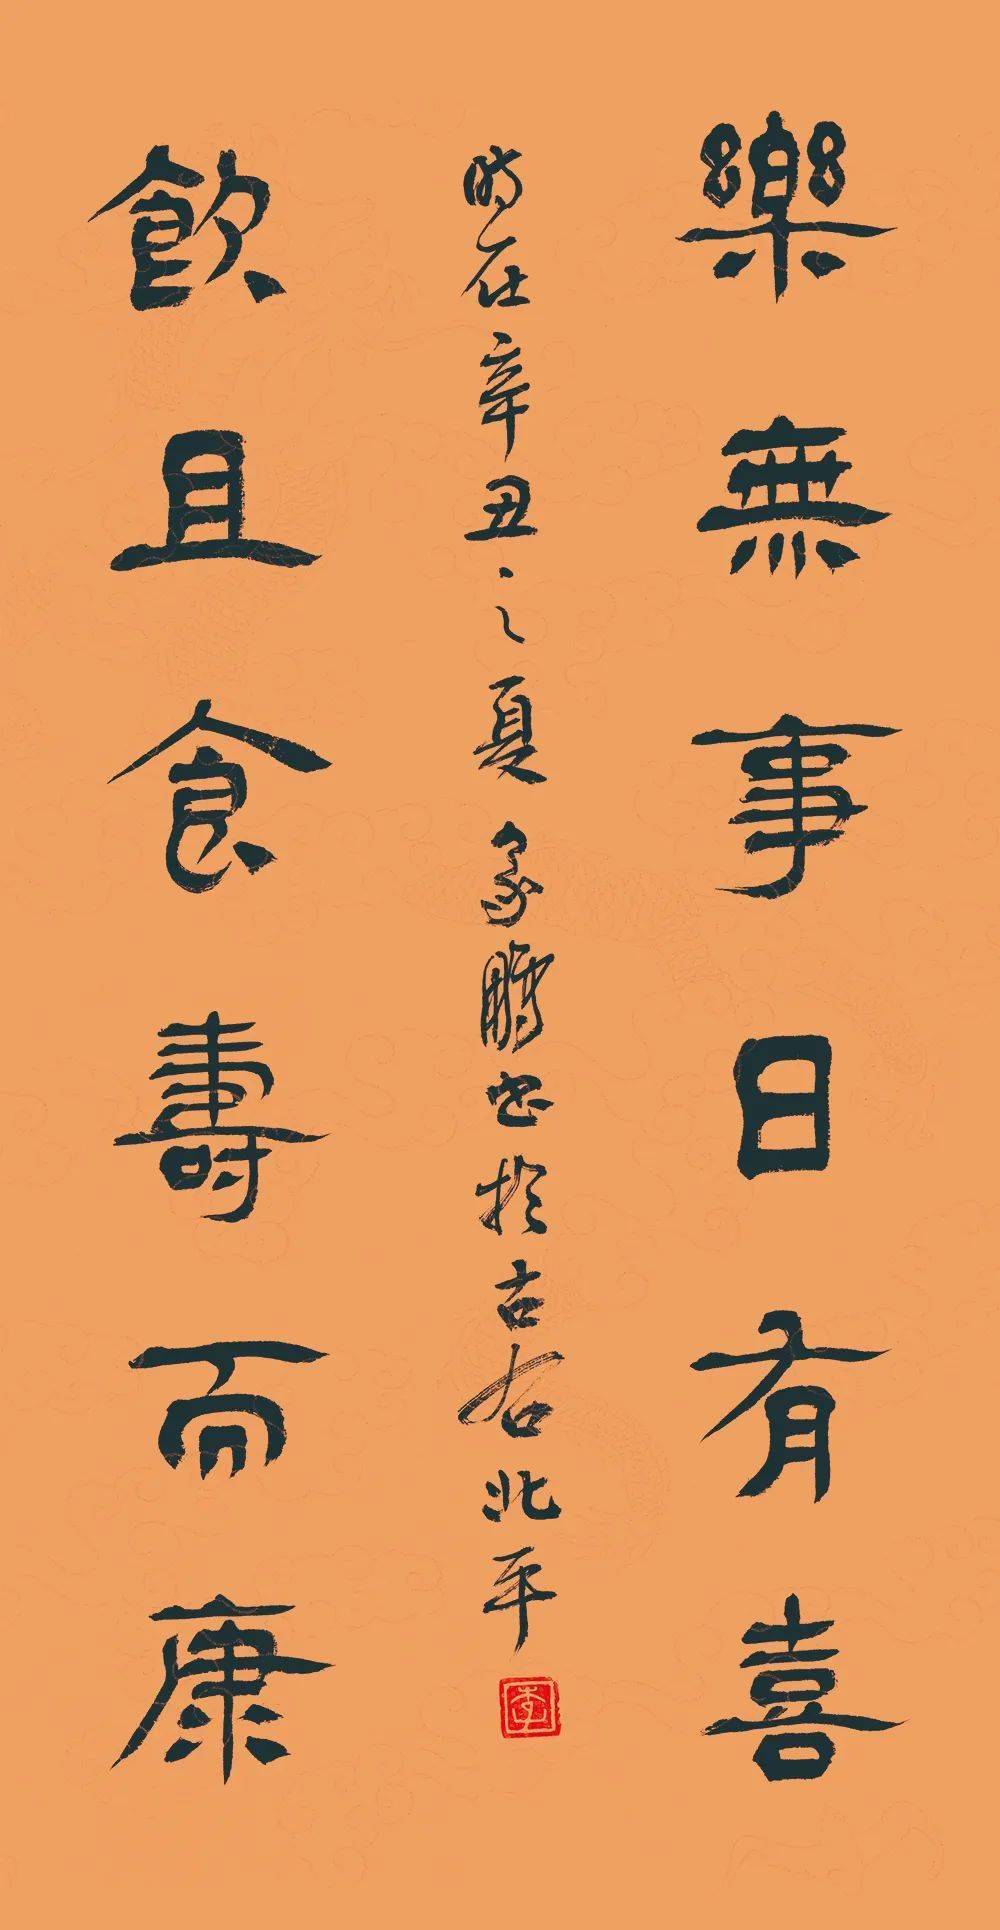 樂無事日有喜
飲且食壽而康
時在辛丑之夏家鵬書於古右北平
李